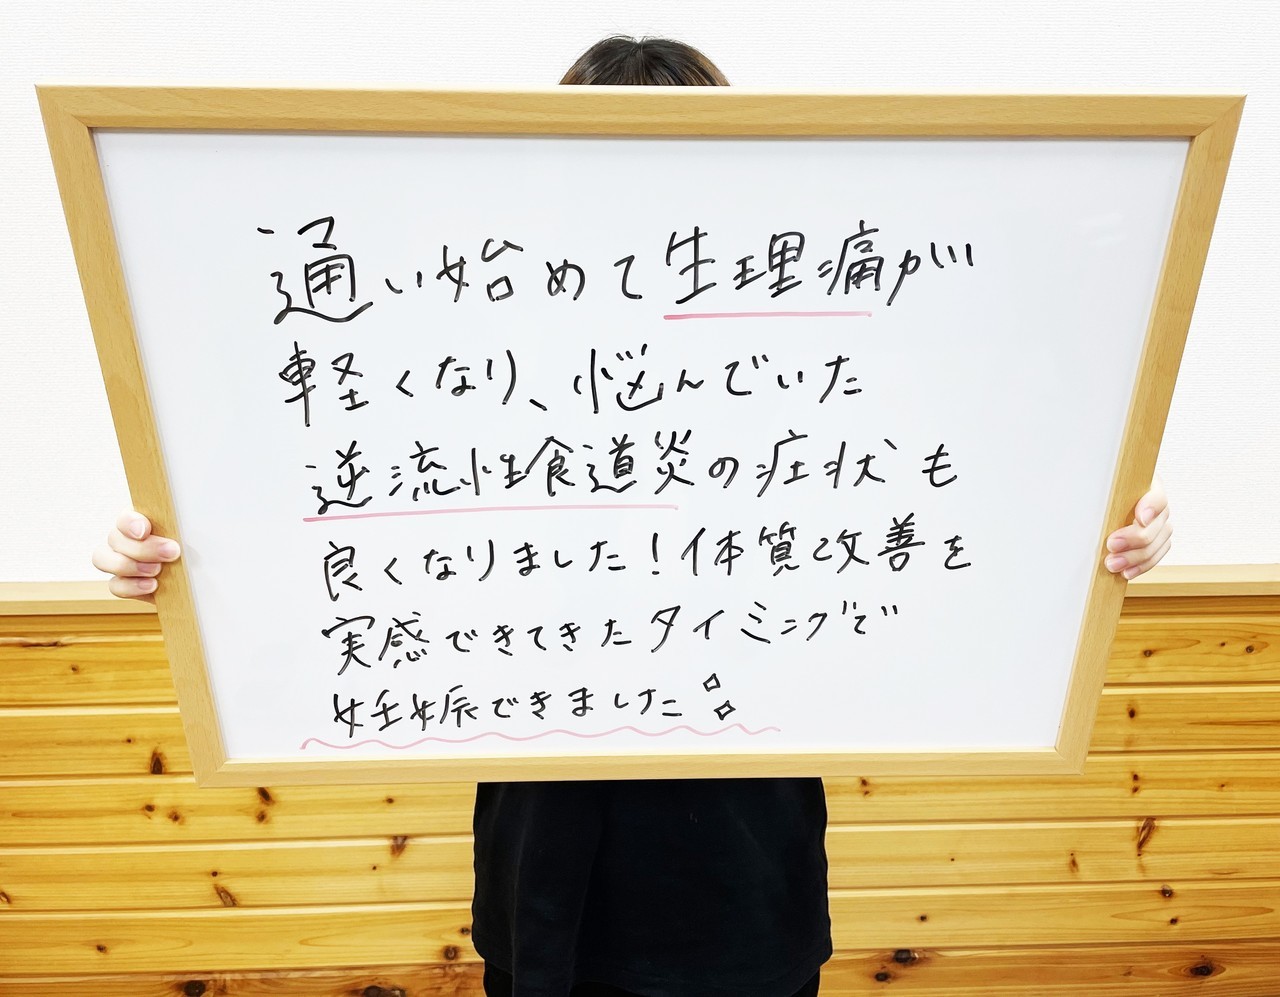 通い始めて生理痛が
軽くなり、悩んでいた
逆流性食道炎の症状も
良くなりました！体質改善を
実感できてきたタイミングで
妊娠できました